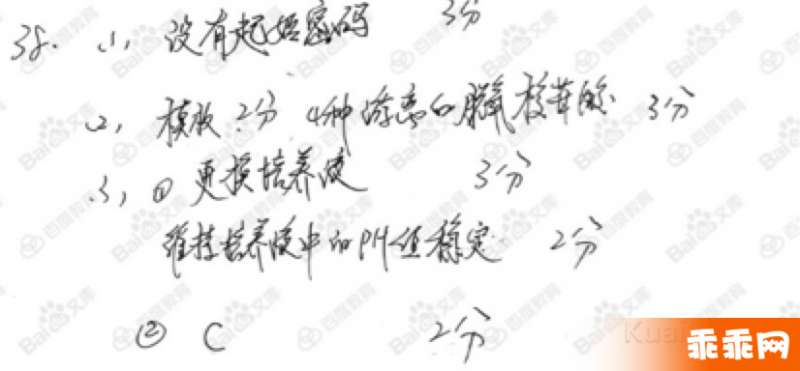 38. (1) 没有起始密码 3分
(2) 模板 2分 4种游离的脱氧核苷酸 3分
(3) ① 更换培养液 3分
维持培养液中的PH值稳定 2分
② C 2分
Bai百度文库
百度教育
乖乖网